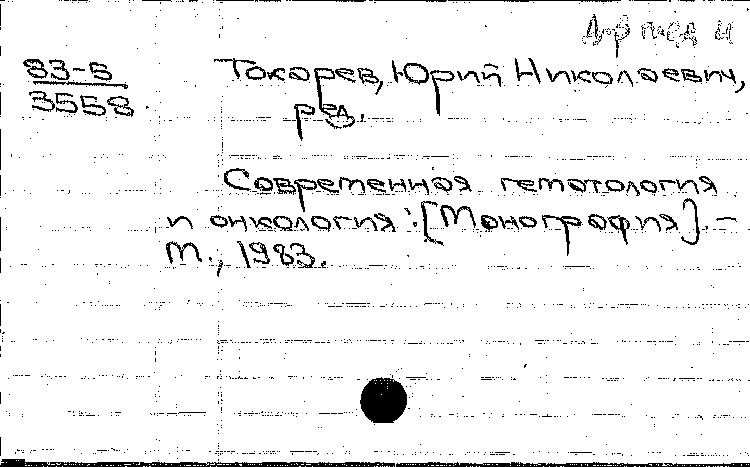 Д-р мед н
83-5
3558
Токарев, Юрий Николаевич,
ред.
Современная гематология
и онкология: [Монография]. –
М., 1983.